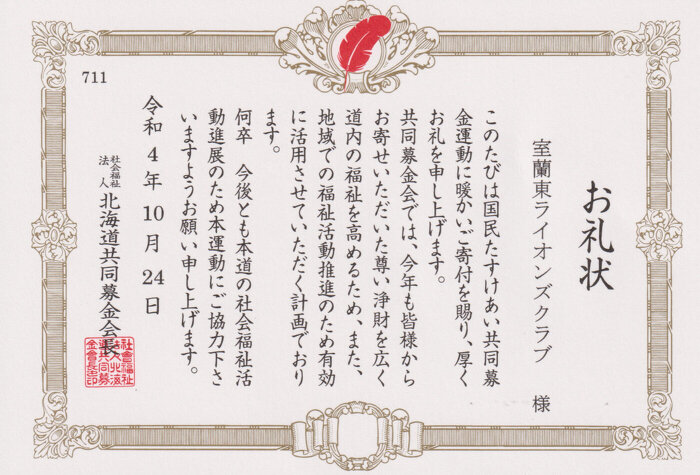 711
お礼状
室蘭東ライオンズクラブ 様
このたびは国民たすけあい共同募
金運動に暖かいご寄付を賜り、厚く
お礼を申し上げます。
共同募金会では、今年も皆様から
お寄せいただいた尊い浄財を広く
道内の福祉を高めるため、また、
地域での福祉活動推進のため有効
に活用させていただく計画でおり
ます。
何卒 今後とも本道の社会福祉活
動進展のため本運動にご協力下さ
いますようお願い申し上げます。
令和4年10月24日
社会福祉
法人 北海道共同募金会長
社會福祉
法人北海
道共同募
金會長印